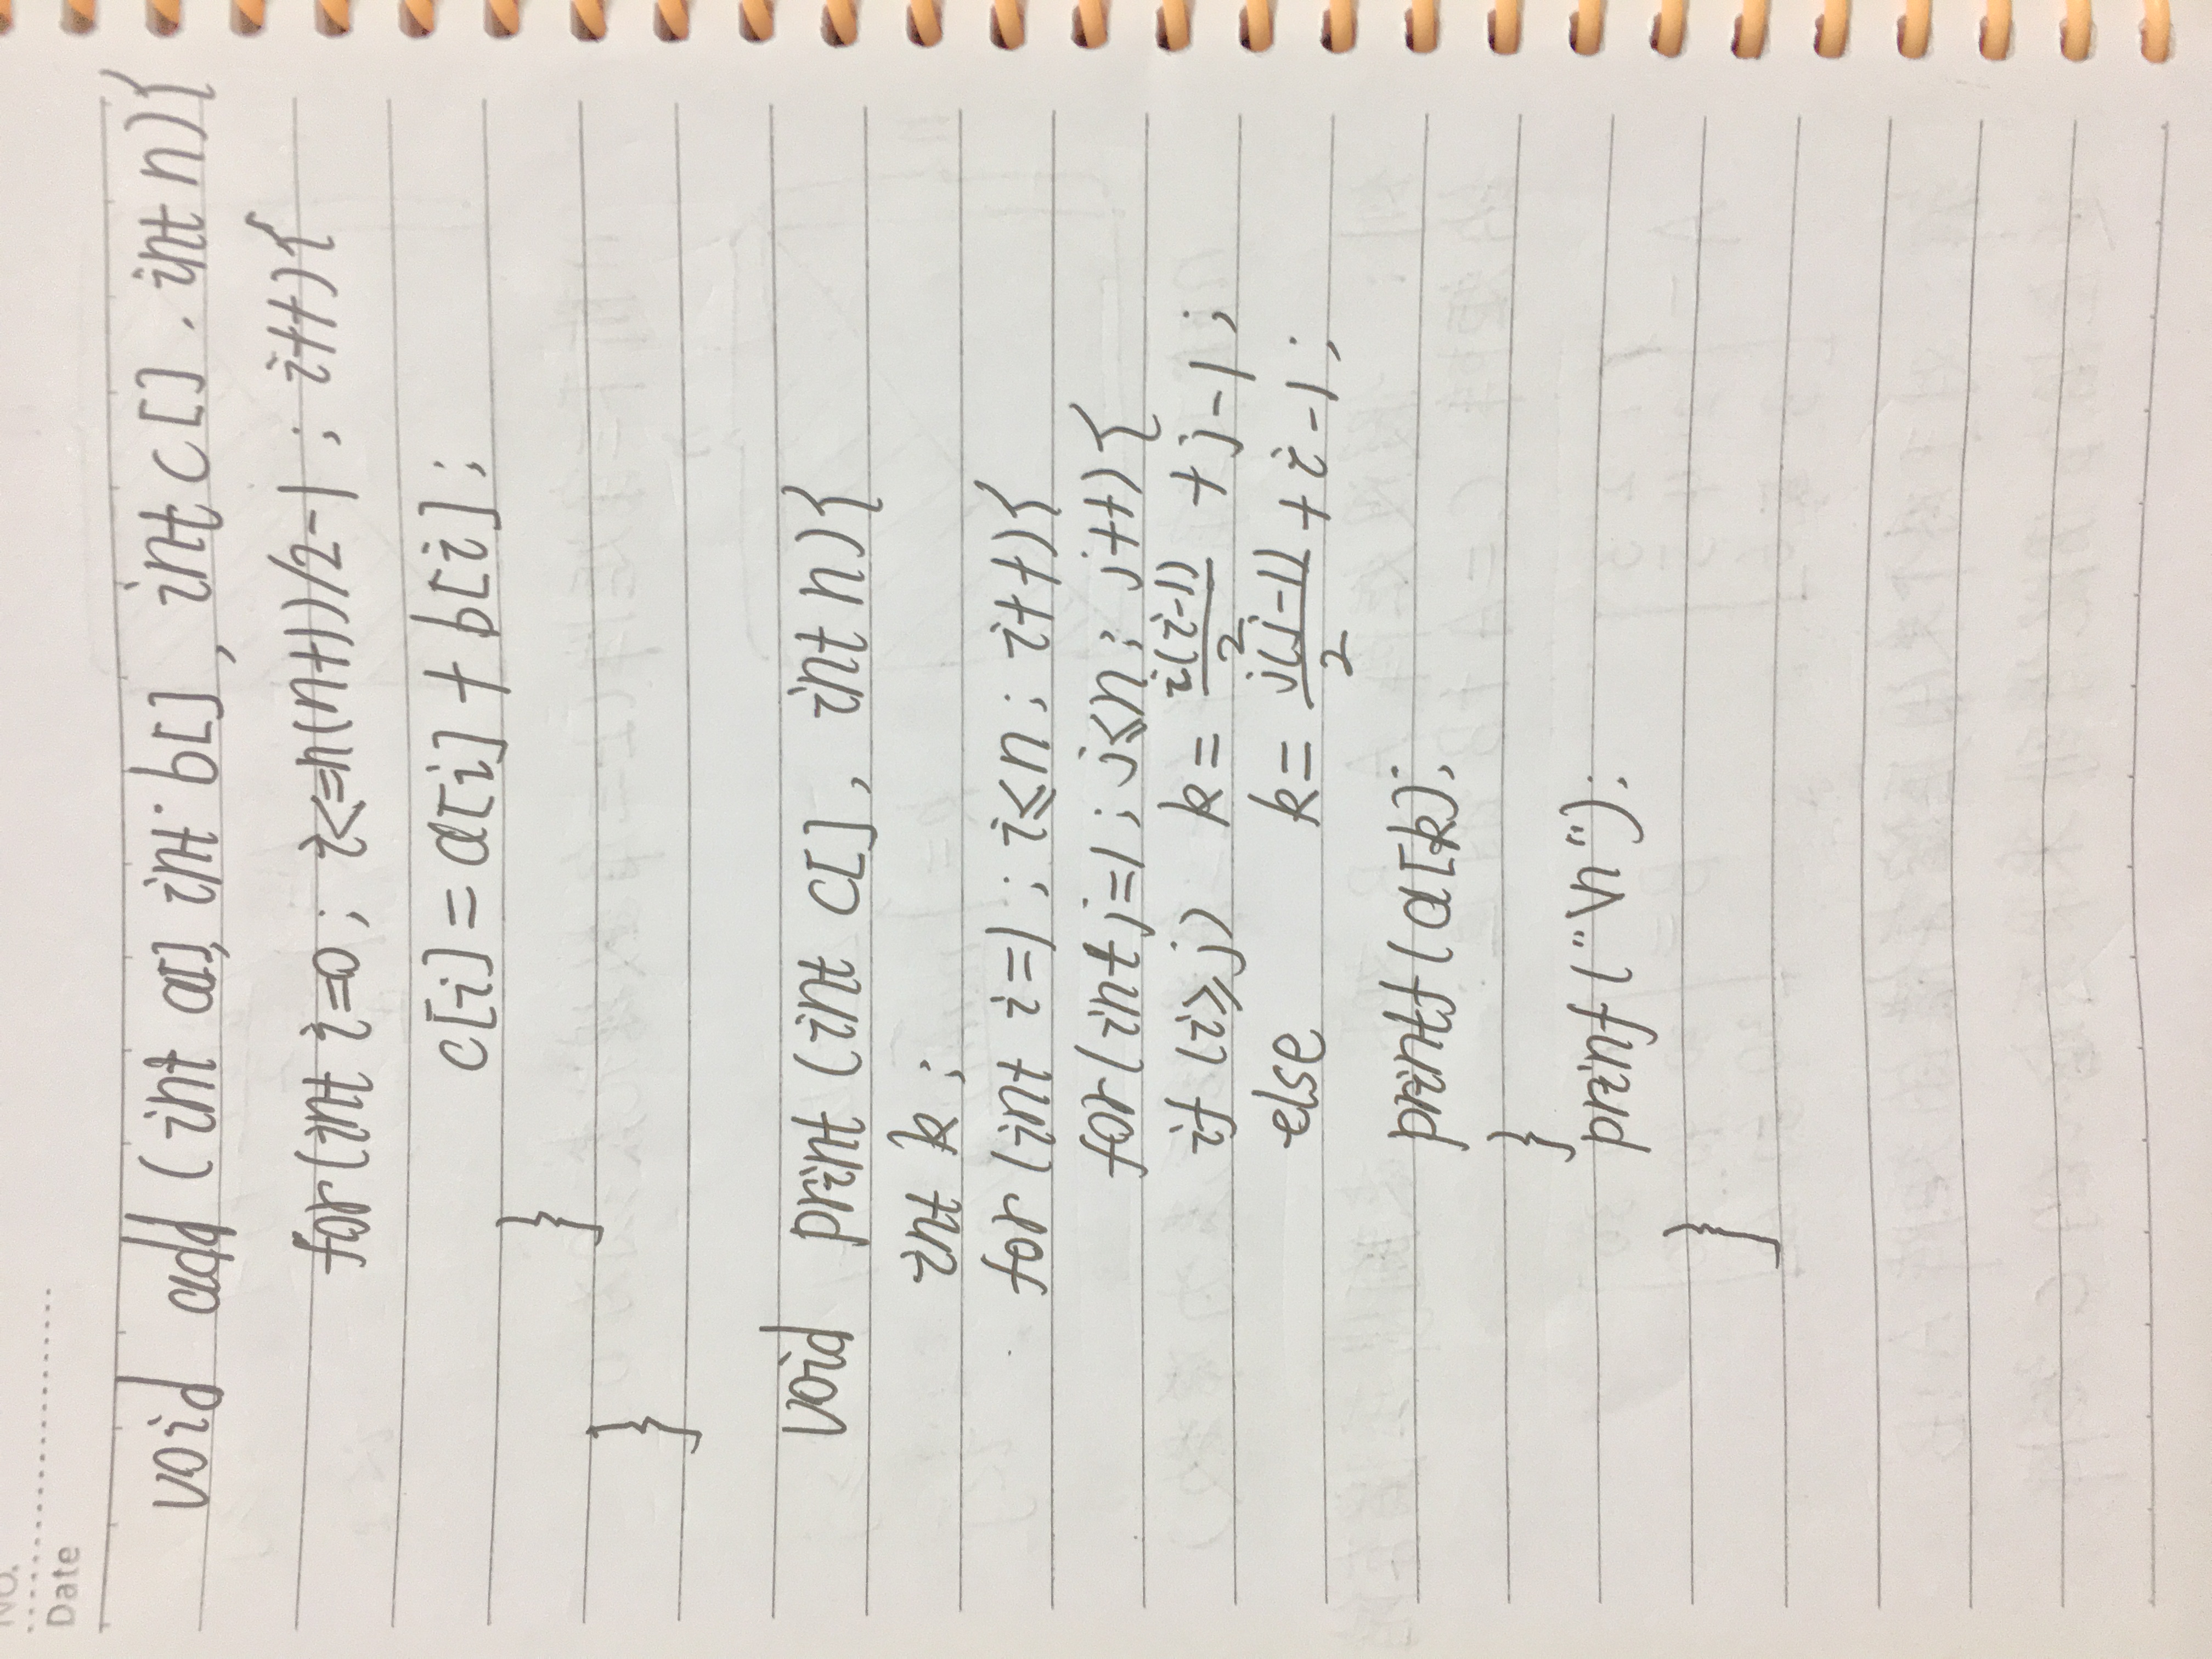 NO.
Date
void add (int a[], int b[], int c[]. int n){
for(int i=0; i<=n(n+1))/2-1; i++){
c[i] = a[i] + b[i];
}
}
void print (int c[], int n){
int k;
for (int i=1; i≤n; i++){
for(int j=1; j≤n; j++){
if (i≥j) k= i(i-1)/2 +j-1;
else k= j(j-1)/2 +i-1;
printf(a[k);
}
prinf("\n");
}